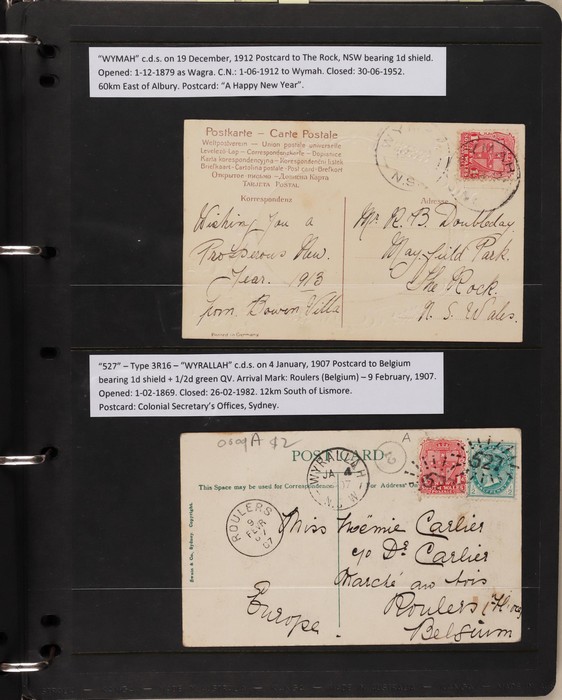 "WYMAH" c.d.s. on 19 December, 1912 Postcard to The Rock, NSW bearing 1d shield.
Opened: 1-12-1879 as Wagra. C.N.: 1-06-1912 to Wymah. Closed: 30-06-1952.
60km East of Albury. Postcard: "A Happy New Year".
Postkarte – Carte Postale
Weltpostverein – Union postale universelle
Levelező-Lap – Correspondenzkarte – Dopisnice
Karta korespondencyjna – Korespondenčni listek
Briefkaart – Cartolina postale – Post card – Brefkort
Открытое письмо – Дописна Карта
Tarjeta Postal
Korrespondenz
Adresse
Wishing You a
Prosperous New
Year. 1913
from Bowen Villa
Mr. R. B. Doubleday
Mayfield Park.
The Rock.
N. S. Wales.
"527" – Type 3R16 – "WYRALLAH" c.d.s. on 4 January, 1907 Postcard to Belgium
bearing 1d shield + 1/2d green QV. Arrival Mark: Roulers (Belgium) – 9 February, 1907.
Opened: 1-02-1869. Closed: 26-02-1982. 12km South of Lismore.
Postcard: Colonial Secretary's Offices, Sydney.
$2
A
2
POSTCARD
This Space may be used for Correspondence
For Address
WYRALLAH
JA 4
N.S.W
527
ROULERS
9
FEVR
07
Swain & Co., Sydney. Copyright.
Miss Noëmie Carlier
c/o Dr Carlier
Marché au bois
Roulers
Europe.
Belgium